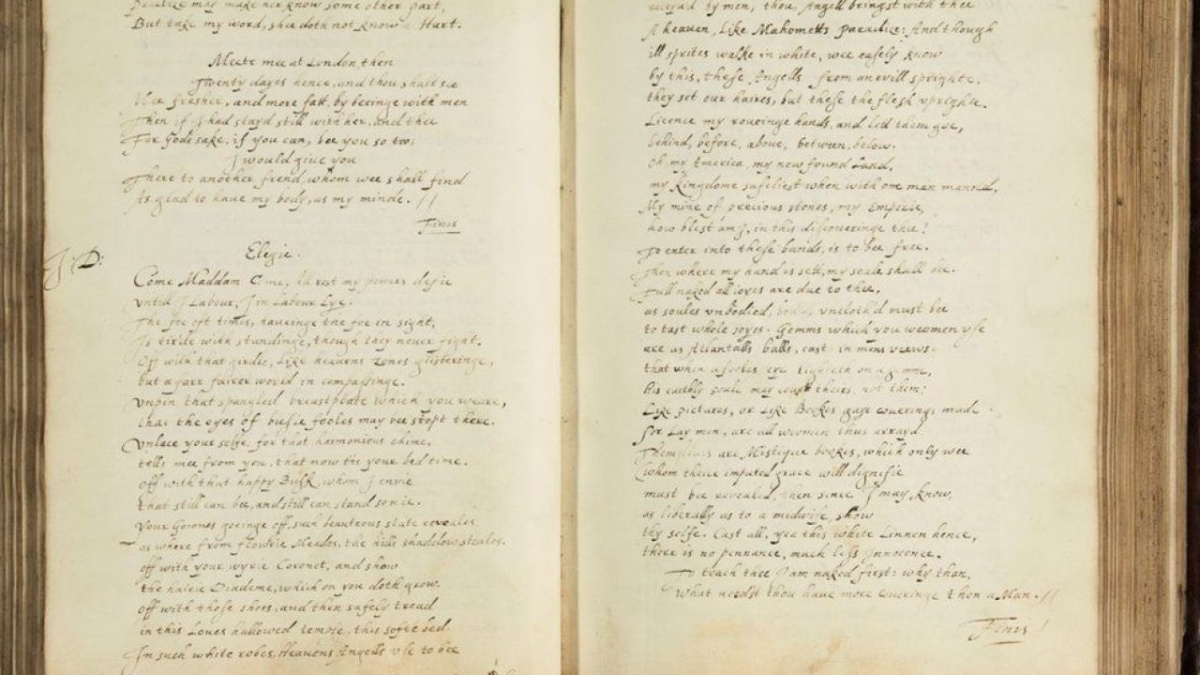 may make her know some other part,
But take my word, shee doth not know a Hart.
Meete mee at London then
Twenty dayes hence, and thou shalt see
Mee fresher, and more fatt, by beeinge with men
Then if I had stayd still with her, and thee
For Gods sake, if you can, bee you so too;
I would giue you
There to another frend, whom wee shall find
As glad to haue my body, as my minde. //
Finis
J: D:
Elegie.
Come Maddam Come, All rest my powers defie
vntill I Labour, I in Labour lye.
The foe oft times, haueinge the foe in sight,
Is tirde with standinge, though they never fight.
Off with that girdle, Like heauens zones glisteringe,
but a farr fairer world in compassinge.
vnpin that spangled breastplate which you weare,
that the eyes of busie fooles may bee stopt there.
Vnlace your selfe, for that harmonious chime,
tells mee from you, that now tis your bed time.
off with that happy Busk, whom I envie
that still can bee, and still can stand so nie.
Your Gownes goeinge off, such beautious state reveales,
as where from flowrie Meades, the hills shaddow steales.
off with your wyrie Coronet, and show
the hairie Diademe, which on you doth grow.
off with those shoes, and then safely tread
in this Loues hallowed temple, this softe bed.
In such white robes, Heauens Angells vse to bee
by men, thou Angell bringst with thee
A heauen, Like Mahometts paradice: And though
ill sprites walke in white, wee easely know
by this, these Angells from an evill sprighte,
they set our haires, but these the flesh vprighte.
Licence my roueinge hands, and lett them goe,
behind, before, above, between, below.
Oh my America, my now found Land,
my Kingdome safeliest when with one man mannd,
My mine of precious stones, my Emperie,
how blest am I, in this discoueringe thee!
To enter into these bands, is to bee free.
Then where my hand is sett, my seale shall bee.
Full naked all ioyes are due to thee,
as soules vnbodied, vncloth'd must bee
to tast whole joyes. Gemms which you weomen vse
are as Atlantalls balls, cast in mens viewes.
that when a fooles eye lighteth on a gemme,
his earthly soule may theirs, not them:
Like pictures, or Like Bookes gaye coueringe made
for Lay men, are all weomen thus arrayd
Themselues are Mistique bookes, which only wee
whom theire imputed grace will dignifie
must bee revealed, then since I may know,
as liberally as to a midwife, show
thy selfe. Cast all, yea this white Linnen hence,
there is no pennance, much less Innocence.
To teach thee I am naked first: why than,
What needst thou haue more coueringe then a Man. //
Finis